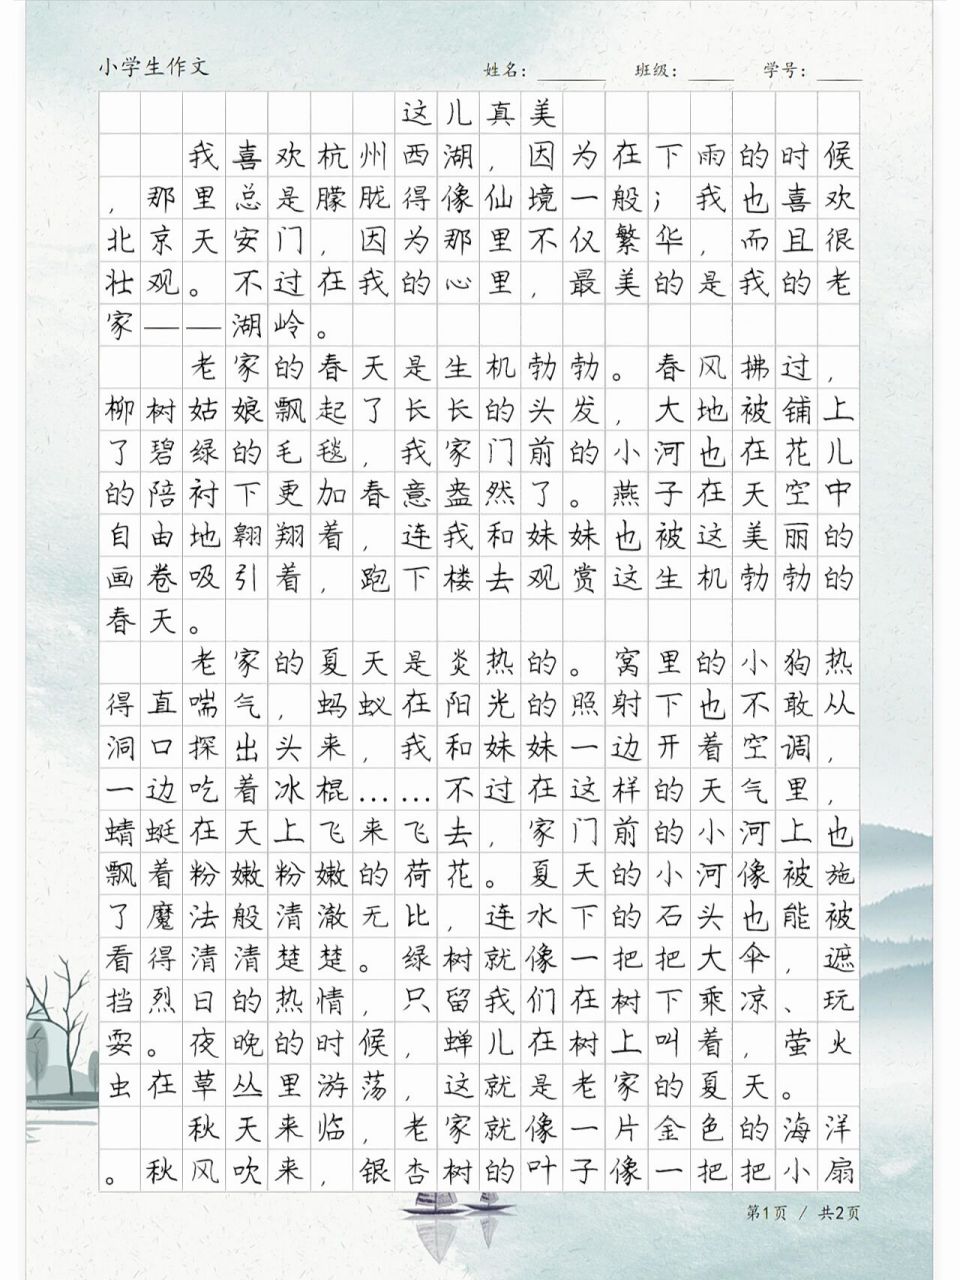 小学生作文
姓名：______ 班级：____ 学号：____
这儿真美
我喜欢杭州西湖，因为在下雨的时候
，那里总是朦胧得像仙境一般；我也喜欢
北京天安门，因为那里不仅繁华，而且很
壮观。不过在我的心里，最美的是我的老
家——湖岭。
老家的春天是生机勃勃。春风拂过，
柳树姑娘飘起了长长的头发，大地被铺上
了碧绿的毛毯，我家门前的小河也在花儿
的陪衬下更加春意盎然了。燕子在天空中
自由地翱翔着，连我和妹妹也被这美丽的
画卷吸引着，跑下楼去观赏这生机勃勃的
春天。
老家的夏天是炎热的。窝里的小狗热
得直喘气，蚂蚁在阳光的照射下也不敢从
洞口探出头来，我和妹妹一边开着空调，
一边吃着冰棍……不过在这样的天气里，
蜻蜓在天上飞来飞去，家门前的小河上也
飘着粉嫩粉嫩的荷花。夏天的小河像被施
了魔法般清澈无比，连水下的石头也能被
看得清清楚楚。绿树就像一把把大伞，遮
挡烈日的热情，只留我们在树下乘凉、玩
耍。夜晚的时候，蝉儿在树上叫着，萤火
虫在草丛里游荡，这就是老家的夏天。
秋天来临，老家就像一片金色的海洋
。秋风吹来，银杏树的叶子像一把把小扇
第1页 / 共2页